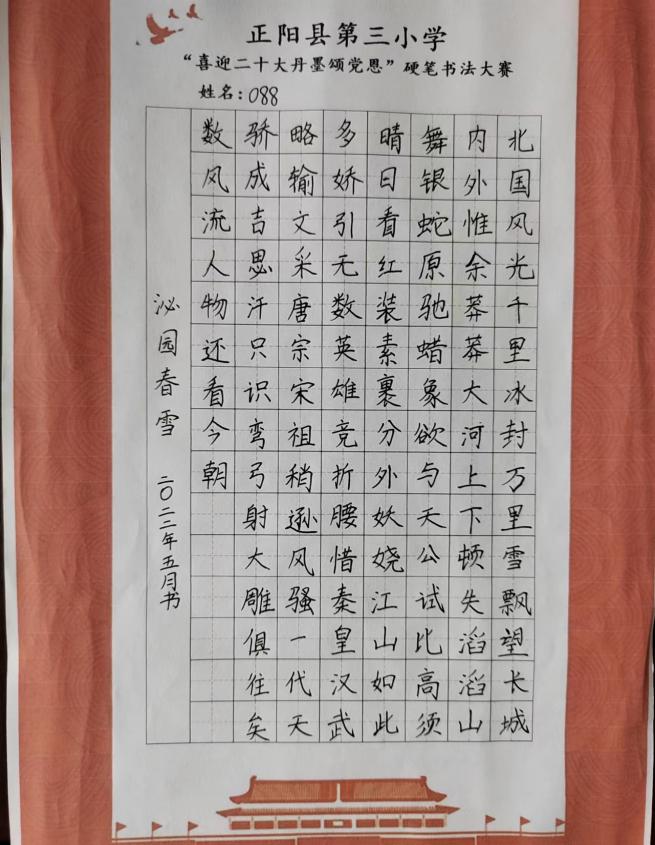 正阳县第三小学
“喜迎二十大丹墨颂党恩”硬笔书法大赛
姓名:088
北国风光千里冰封万里雪飘望长城
内外惟余莽莽大河上下顿失滔滔山
舞银蛇原驰蜡象欲与天公试比高须
晴日看红装素裹分外妖娆江山如此
多娇引无数英雄竞折腰惜秦皇汉武
略输文采唐宗宋祖稍逊风骚一代天
骄成吉思汗只识弯弓射大雕俱往矣
数风流人物还看今朝
沁园春雪 二〇二二年五月书